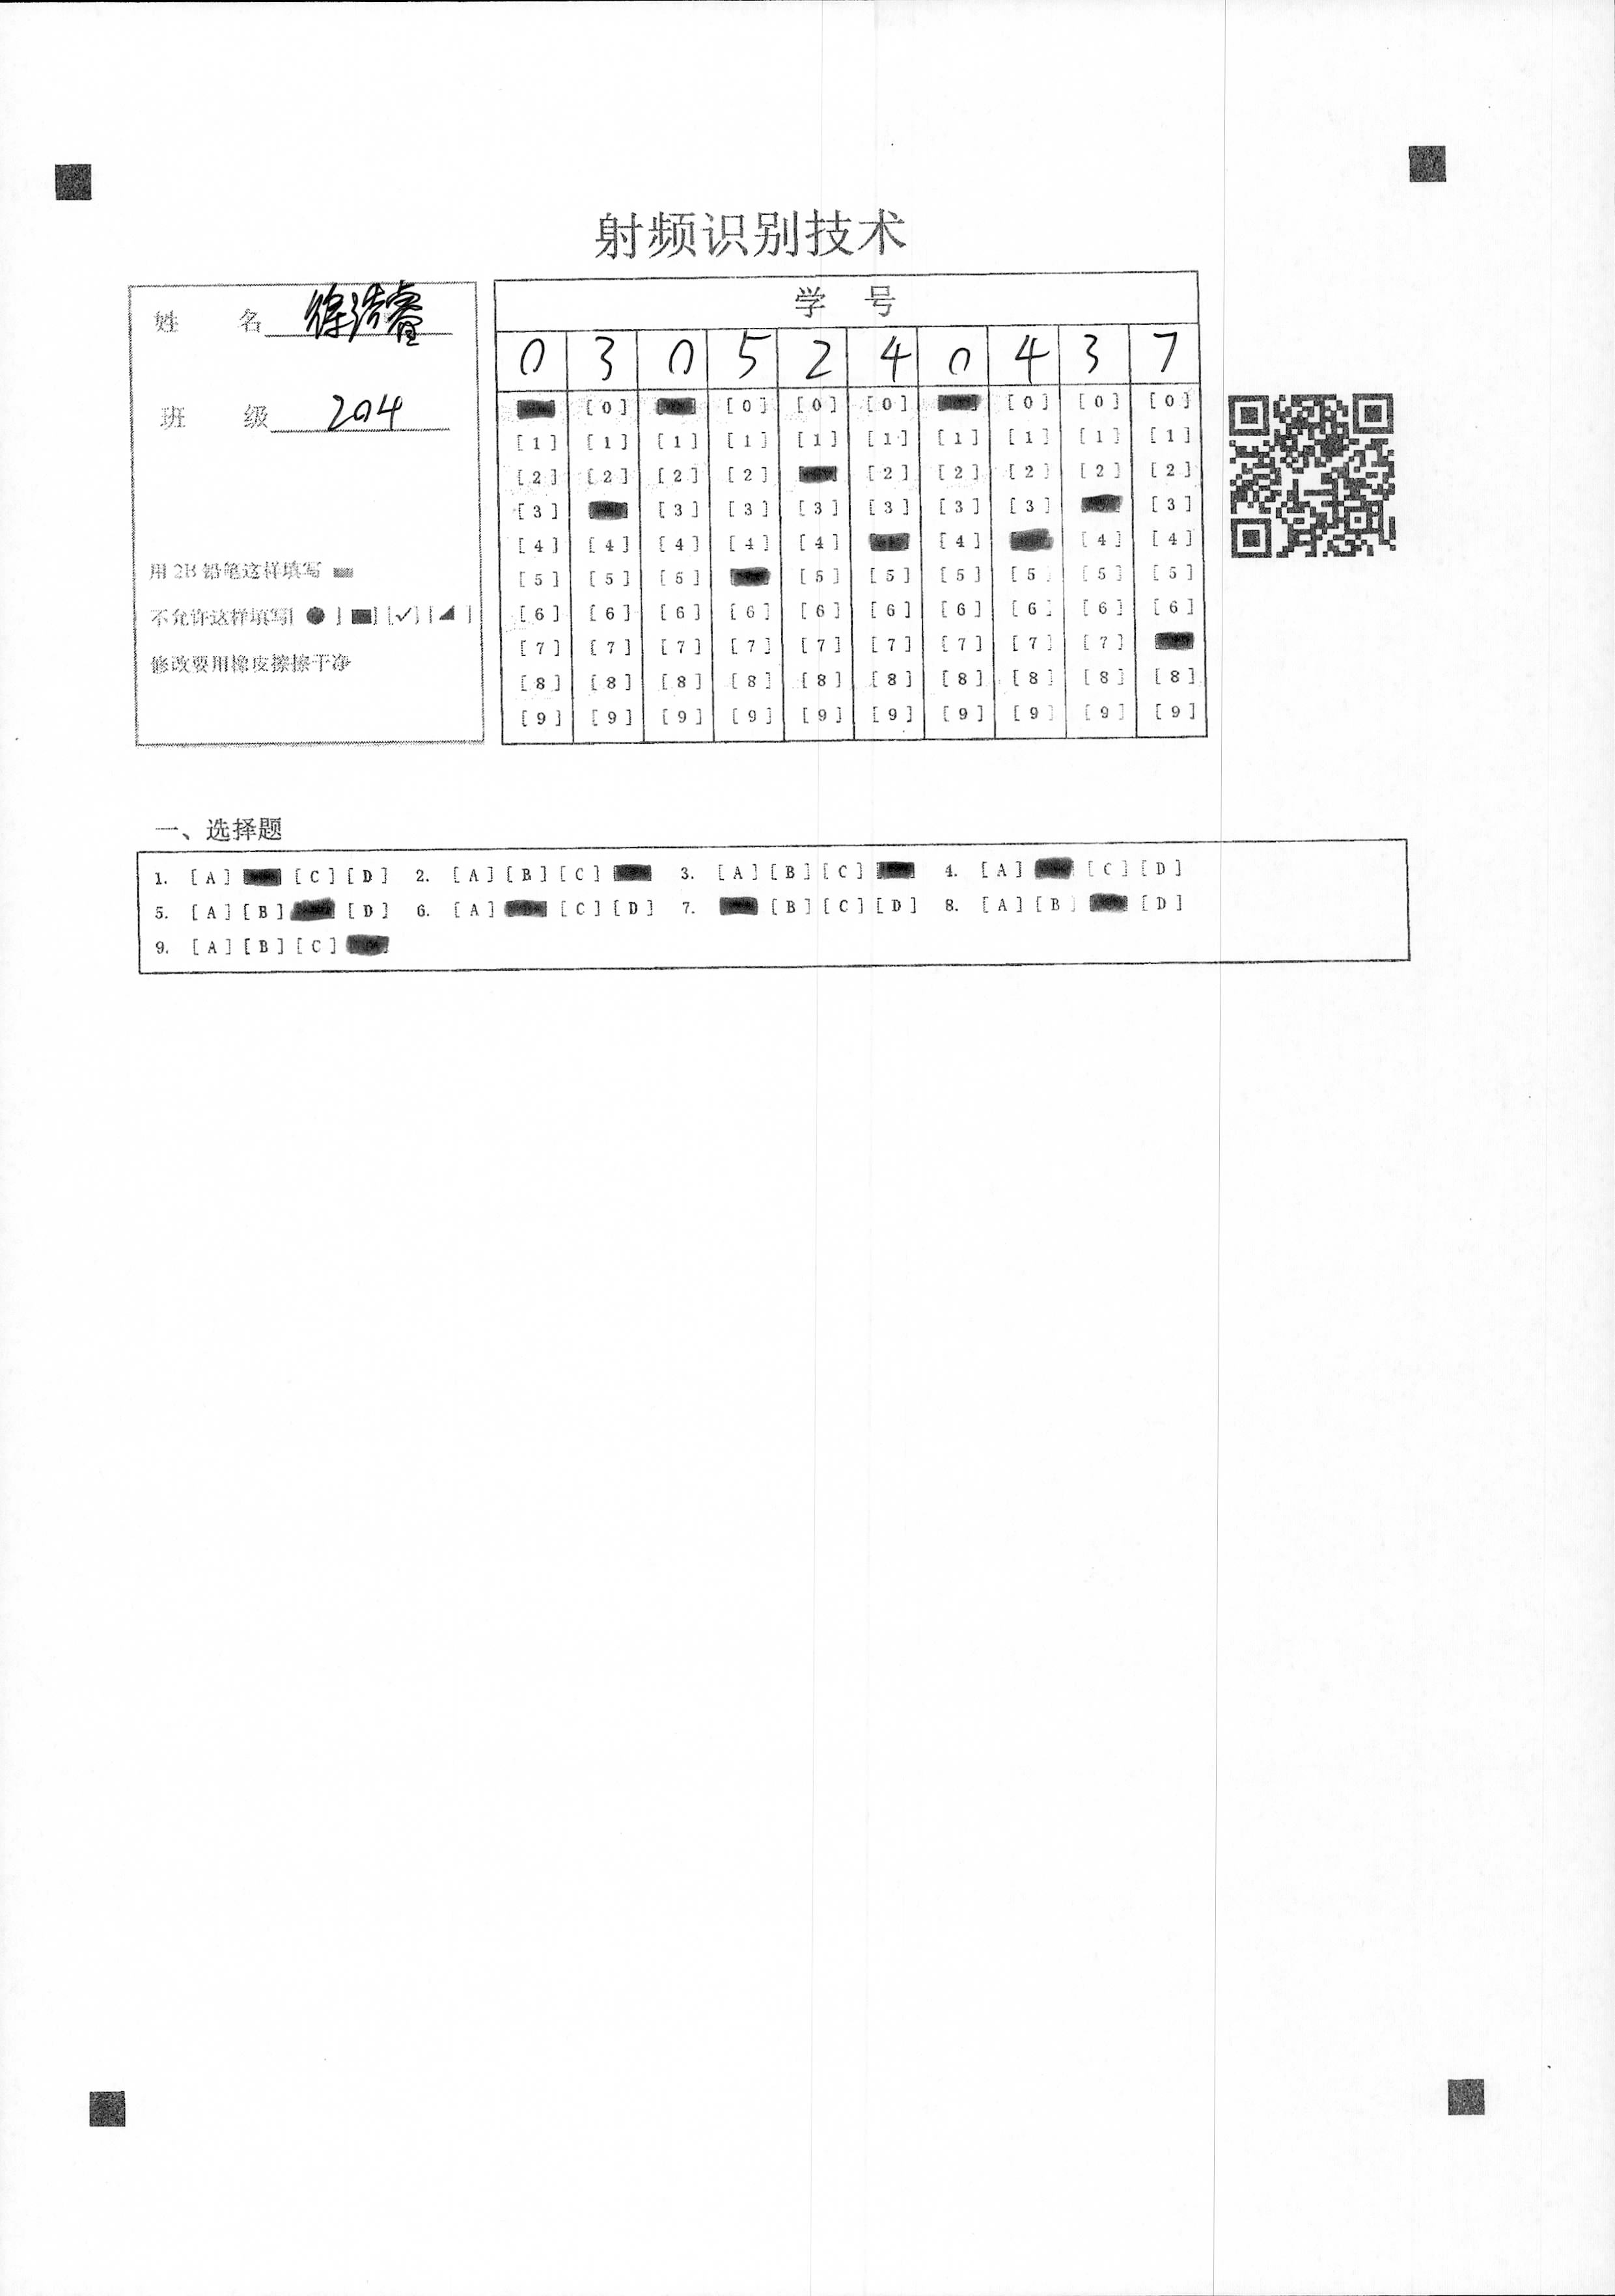 射频识别技术
姓 名 徐浩睿
班 级 204
用 2B 铅笔这样填写
不允许这样填写[●] [■] [✓] [◢]
修改要用橡皮擦擦干净
学 号
0 3 0 5 2 4 0 4 3 7
[0] [0] [0] [0] [0] [0]
[1] [1] [1] [1] [1] [1] [1] [1] [1] [1]
[2] [2] [2] [2] [2] [2] [2] [2] [2]
[3] [3] [3] [3] [3] [3] [3] [3]
[4] [4] [4] [4] [4] [4] [4] [4]
[5] [5] [5] [5] [5] [5] [5] [5] [5]
[6] [6] [6] [6] [6] [6] [6] [6] [6] [6]
[7] [7] [7] [7] [7] [7] [7] [7] [7]
[8] [8] [8] [8] [8] [8] [8] [8] [8] [8]
[9] [9] [9] [9] [9] [9] [9] [9] [9] [9]
一、选择题
1. [A] [C] [D] 2. [A] [B] [C] 3. [A] [B] [C] 4. [A] [C] [D]
5. [A] [B] [D] 6. [A] [C] [D] 7. [B] [C] [D] 8. [A] [B] [D]
9. [A] [B] [C]